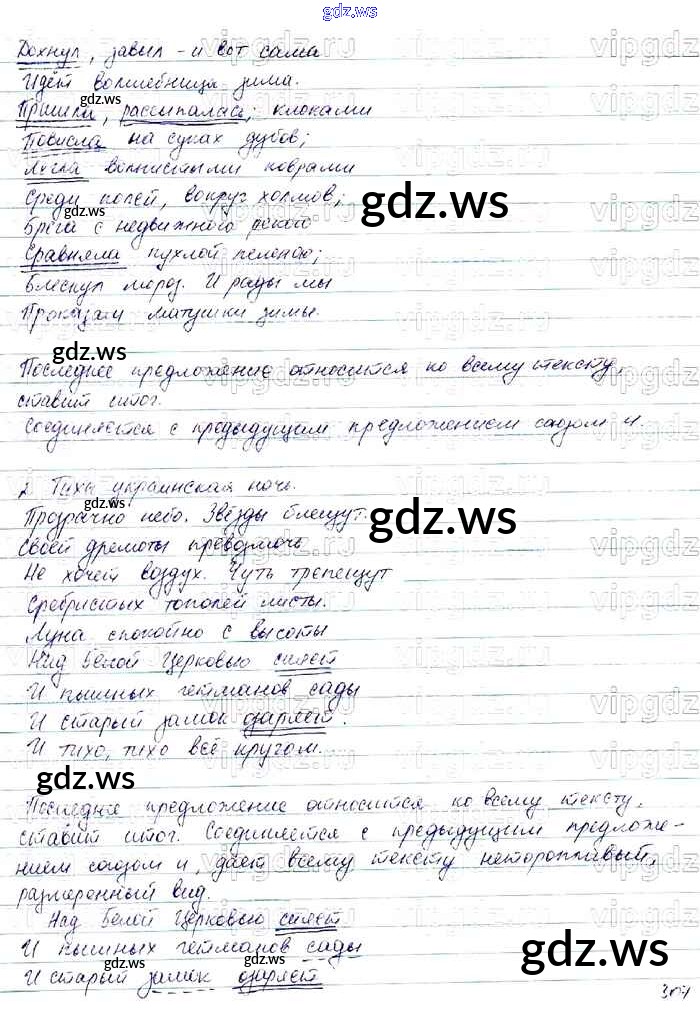 gdz.ws
Дохнул, завыл - и вот сама
Идёт волшебница зима.
Пришла, рассыпалась; клоками
Повисла на суках дубов;
Легла волнистыми коврами
Среди полей, вокруг холмов;
Брега с недвижною рекою
Сравняла пухлой пеленою;
Блеснул мороз. И рады мы
Проказам матушки зимы.
Последнее предложение относится ко всему тексту,
ставит итог.
Соединяется с предыдущим предложением союзом и.
2. Тиха украинская ночь.
Прозрачно небо. Звёзды блещут.
Своей дремоты превозмочь
Не хочет воздух. Чуть трепещут
Сребристых тополей листы.
Луна спокойно с высоты
Над Белой Церковью сияет
И пышных гетманов сады
И старый замок озаряет.
И тихо, тихо всё кругом.
Последнее предложение относится ко всему тексту,
ставит итог. Соединяется с предыдущим предложе-
нием союзом и, даёт всему тексту неторопливый,
размеренный вид.
Над Белой Церковью сияет
И пышных гетманов сады
И старый замок озаряет